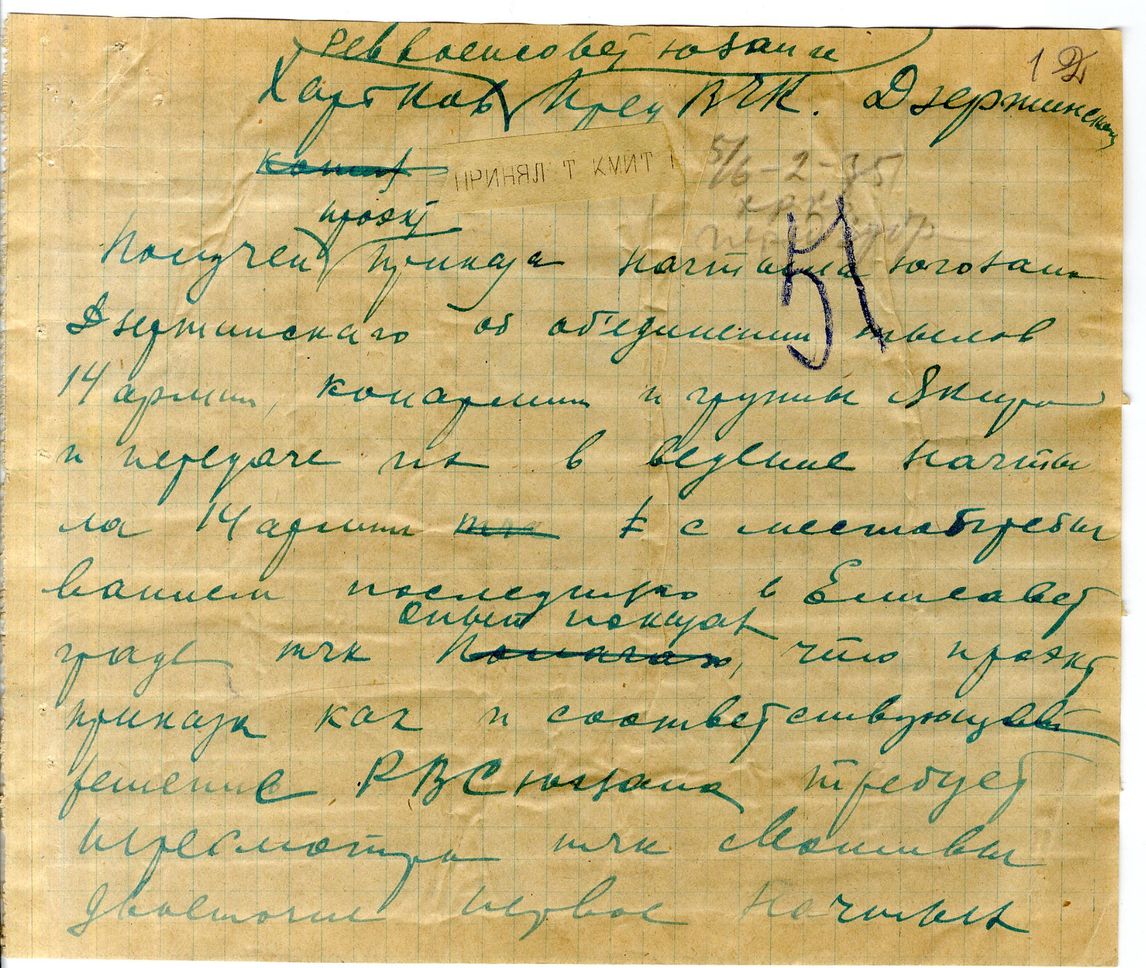 Реввоенсовет югзап
1
Харьков Пред ВЧК. Дзержинскому
ПРИНЯЛ Т КМИТ
5/6-2-35
проэкт
51
Получен приказа начтыла югозапа
Дзержинскаго об об'единении тылов
14 армии, конармии и группы Якира
и передаче их в ведение начты
ла 14 армии с местопребы
ванием последняго в Елисавет
опыт показал
граде тчк Полагаю, что проэкт
приказа как и соответствующее
решение РВС югзапа требует
пересмотра тчк Мотивы
двоеточие первое Начтыл